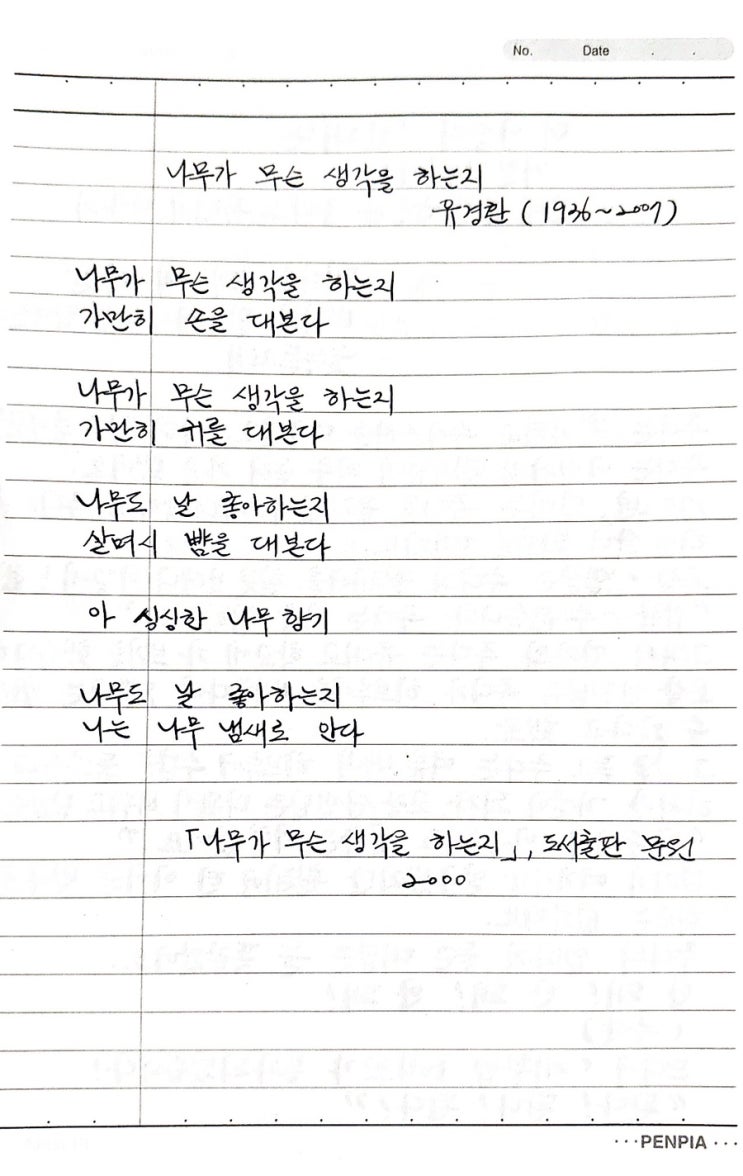 No. Date . .
나무가 무슨 생각을 하는지
유경환 (1936~2007)
나무가 무슨 생각을 하는지
가만히 손을 대본다
나무가 무슨 생각을 하는지
가만히 귀를 대본다
나무도 날 좋아하는지
살며시 뺨을 대본다
아 싱싱한 나무 향기
나무도 날 좋아하는지
나는 나무 냄새로 안다
「나무가 무슨 생각을 하는지」, 도서출판 문원
2000
···PENPIA···